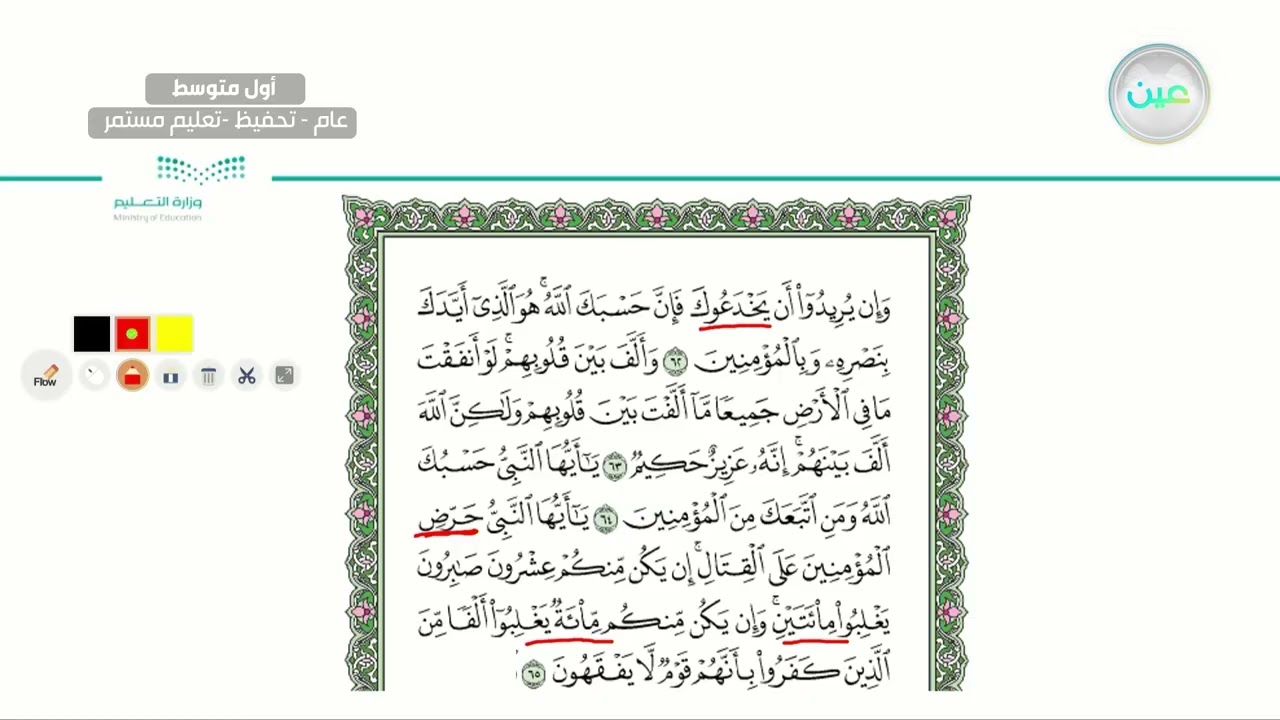 أول متوسط
عام - تحفيظ -تعليم مستمر
عين
وزارة التعـــليم
Ministry of Education
Flow
وَإِن يُرِيدُوٓاْ أَن يَخْدَعُوكَ فَإِنَّ حَسْبَكَ ٱللَّهُۚ هُوَ ٱلَّذِىٓ أَيَّدَكَ
بِنَصْرِهِۦ وَبِٱلْمُؤْمِنِينَ ٦٢ وَأَلَّفَ بَيْنَ قُلُوبِهِمْۚ لَوْ أَنفَقْتَ
مَا فِى ٱلْأَرْضِ جَمِيعًا مَّآ أَلَّفْتَ بَيْنَ قُلُوبِهِمْ وَلَٰكِنَّ ٱللَّهَ
أَلَّفَ بَيْنَهُمْۚ إِنَّهُۥ عَزِيزٌ حَكِيمٌ ٦٣ يَٰٓأَيُّهَا ٱلنَّبِىُّ حَسْبُكَ
ٱللَّهُ وَمَنِ ٱتَّبَعَكَ مِنَ ٱلْمُؤْمِنِينَ ٦٤ يَٰٓأَيُّهَا ٱلنَّبِىُّ حَرِّضِ
ٱلْمُؤْمِنِينَ عَلَى ٱلْقِتَالِۚ إِن يَكُن مِّنكُمْ عِشْرُونَ صَٰبِرُونَ
يَغْلِبُواْ مِاْئَتَيْنِۚ وَإِن يَكُن مِّنكُم مِّاْئَةٌ يَغْلِبُوٓاْ أَلْفًا مِّنَ
ٱلَّذِينَ كَفَرُواْ بِأَنَّهُمْ قَوْمٌ لَّا يَفْقَهُونَ ٦٥